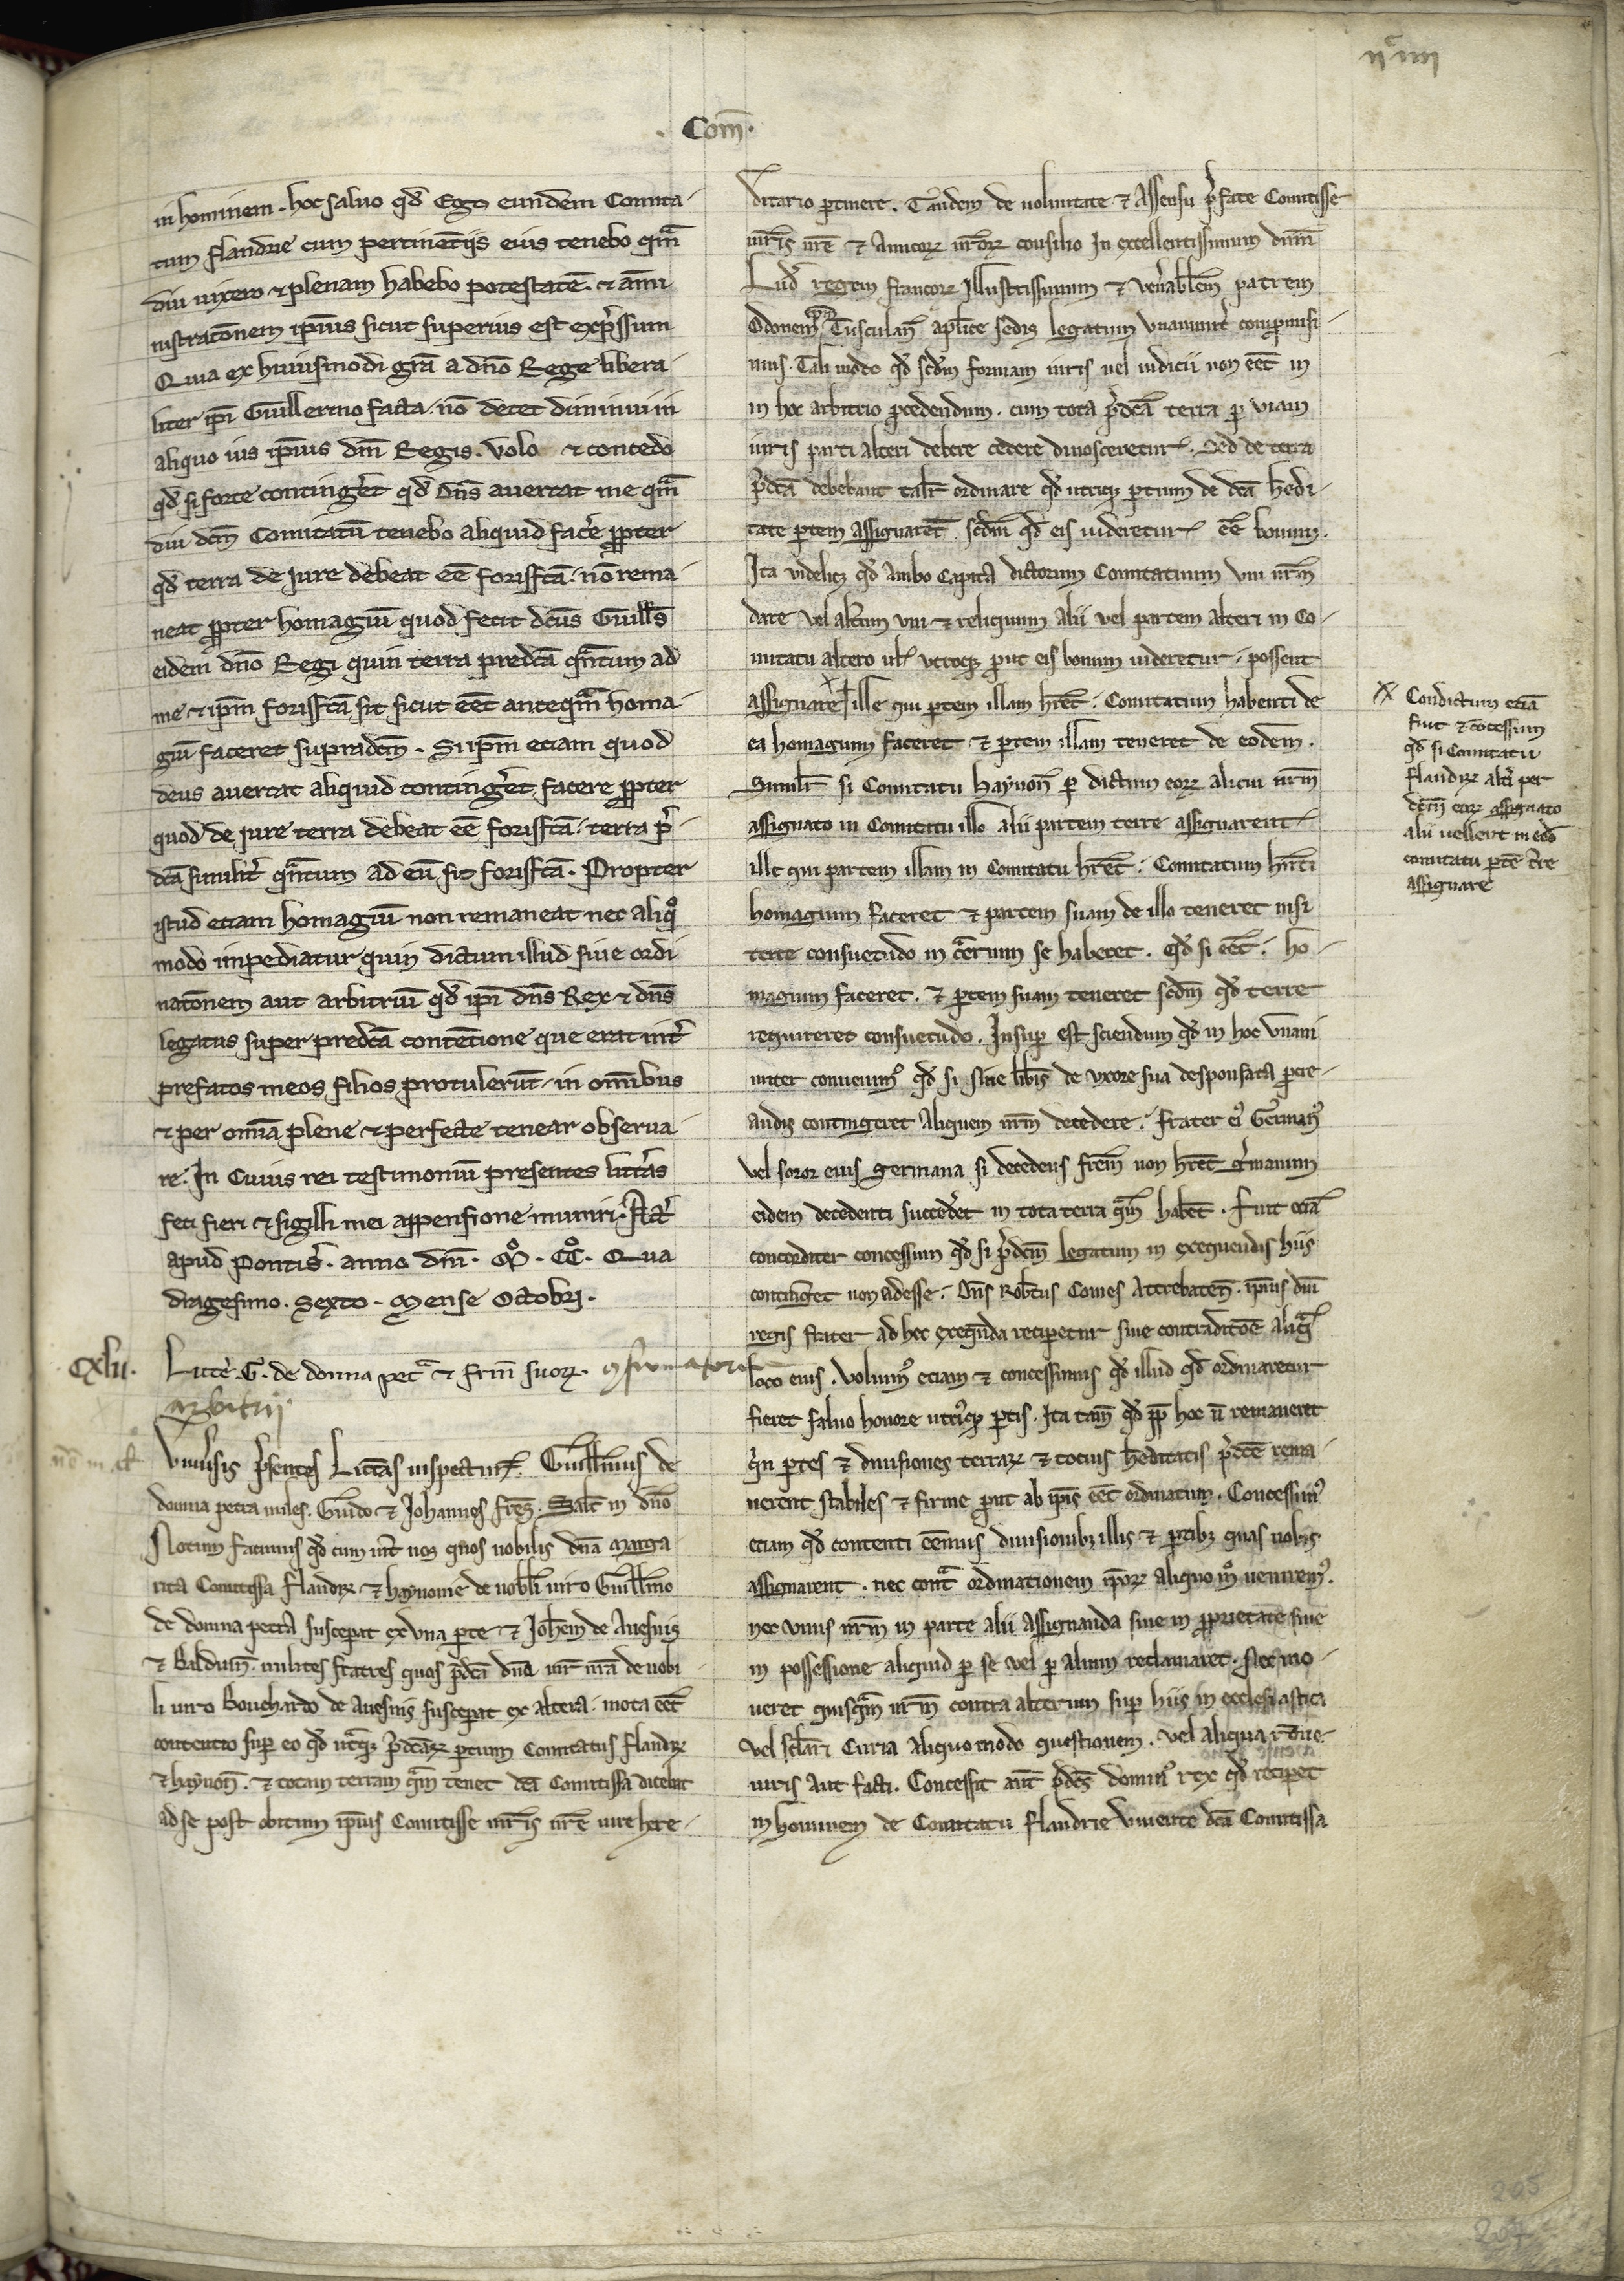 ııᶜıııı
. Com̄.
in hominem . hoc saluo qd̃ Ego eundem Comita-
tum flandrie cum pertinẽtijs eius tenebo qm̃
diu uixero ⁊ plenam habebo potestatẽ . ⁊ am̃i
nistratõnem ip̃ius sicut superius est exp̃ssum
Quia ex huiusmodi gr̃a a dño Rege libera-
liter ip̃i Guillermo facta . nõ decet diminui in
aliquo ius ip̃ius dñi Regis . Volo ⁊ concedo
qd̃ si forte conting̃et qd̃ Dñs auertat me qm̃
diu dcm̃ Comitatũ tenebo aliquid fac̃e ꝓpter
qd̃ terra de Jure debeat eẽ forisfc̃a . nõ rema-
neat ꝓpter homagiũ quod fecit dc̃us Guill̃s
eidem dño Regi quin terra predc̃a qñtum ad
me ⁊ ip̃m forisfc̃a sit sicut eẽt anteqm̃ homa-
giũ faceret supradcm̃ . Si ip̃m eciam quod
deus auertat aliquid conting̃et facere ꝓpter
quod de Jure terra debeat eẽ forisfc̃a . terra p̃-
dc̃a similit̃ qñtum ad eũ sit forisfc̃a . Propter
istud eciam homagiũ non remaneat nec aliqͦ
modo impediatur quin dictum illud siue ordi
natõnem aut arbitriũ qd̃ ip̃i dñs Rex ⁊ dñs
legatus super predc̃a contẽtione que erat int̃
prefatos meos filios protulerũt . in om̃ibus
⁊ per om̃ia plene ⁊ perfecte tenear obserua
re . In Cuius rei testimoniũ presentes litt̃as
feci fieri ⁊ sigilli mei appensione muniri . Act̃
apud Pontis̃ . anno dñi . Mͦ . CCͦ . Qua
dragesimo . Sexto . Mense Octobri .
Cxlii . Litt̃e . G . de donna pet̃ ⁊ fr̃m suoꝝ . ꝯfirmatoꝛie
arbitrii
Vniũsis p̃sentes Litt̃as inspectur̃ . Guill̃mus de
donna petra miles . Guido ⁊ Johannes fr̃es . Salt̃ in dño
Notum facimus qd̃ cum int̃ nos quos nobilis dña marga
rita Comitissa flandrẽ ⁊ haynonie de nobl̃i uiro Guill̃mo
de donna petra susceperat ex vna parte ⁊ Joh̃em de Auesnis
⁊ Balduiñ . milites fratres quos p̃dc̃a dña mr̃ nr̃a de nobi-
li uiro Bouchardo de auesnis susceperat ex altera . mota eẽt
contentio sup̃ eo qd̃ utraqꝫ p̃dc̃aꝝ partium Comitatus flandrẽ
⁊ haynoñ . ⁊ totam terram qm̃ tenet dc̃a Comitissa dicebat
ad se post obitum ip̃ius Comitisse mr̃is nr̃e iure here-
ditario ꝑtinere . Tandem de uoluntate ⁊ Assensu p̃fate Comitisse
mr̃is nr̃e ⁊ amicoꝝ nr̃oꝝ consilio In excellentissimum dñm
Lud̃ regem francoꝝ Jllustrissimum ⁊ ven̾abl̃em patrem
Odonem ep̃m Tusculañ apl̃ice sedis legatum vnanimit̃ compromisi-
mus . Tali modo qd̃ scd̃m formam iuris uel iudicii non eẽt in
in hoc arbitrio ꝓcedendum . cum tota p̃dc̃a terra ꝑ viam
iuris parti alteri debere cedere dinosceretur . Sed de terra
p̃dc̃a debebant talit̃ ordinare qd̃ utriqꝫ ꝑtium de dc̃a h̃edi-
tate ꝑtem assignarẽt scd̃m qd̃ eis uideretur eẽ bonum .
Ita videlicꝫ qd̃ ambo Capita dictorum Comitatuum vni nr̃m
dare vel alt̃um vni ⁊ reliquum alii vel partem alteri in Co-
mitatu altero ul̃ vtroqꝫ ꝓut eis bonum uideretur . possent
assignare ille qui ꝑtem illam h̃ret . Comitatum habenti de
ea homagium faceret ⁊ ꝑtem illam teneret de eodem .
Similit̃ si Comitatu haynoñ ꝑ dictum eoꝝ alicui nr̃m
assignato in Comitatu illo alii partem terre assignarent
ille qui partem illam in Comitatu h̃ret . Comitatum h̃nti
homagium faceret ⁊ partem suam de illo teneret nisi
terre consuetudo in c̃trarium se haberet . Qd̃ si eẽt . ho-
magium faceret . ⁊ ꝑtem suam teneret scd̃m qd̃ terre
requireret consuetudo . Insup̃ est sciendum qd̃ in hoc vnani
miter conuenimꝰ qd̃ si sine lib̃is de vxore sua desponsata ꝓcre-
andis contingeret aliquem nr̃m decedere . frater eiꝰ Germanꝰ
vel soror eius germana si decedens fr̃em non h̃ret g̃manum
eidem decedenti succed̃et in tota terra qm̃ habet̃ . fuit eciã
concorditer concessum qd̃ si p̃dcm̃ legatum in exequendis hiis
conting̃et non adesse . Dñs Rob̃tus Comes Attrebateñ . ip̃ius dñi
regis frater ad hec exequẽda reciperetur sine contradictõe aliqa
loco eius . Volumꝰ eciam ⁊ concessimus qd̃ illud qd̃ ordinaretur
fieret saluo honore utriꝰqꝫ ꝑtis . Ita tam̃ qd̃ ꝓp̃ hoc ñ remaneret
q̃n ꝑtes ⁊ diuisiones terraꝝ ⁊ tocius h̃editatis p̃dc̃e rema-
nerent stabiles ⁊ firme ꝓut ab ip̃is eẽt ordinatum . Concessimꝰ
eciam qd̃ contenti eẽmus diuisionibꝫ illis ⁊ ꝑtibꝫ quas nobis
assignarent . nec cont̃ ordinationem ip̃oꝝ aliquo mͦ ueniremꝰ .
nec vnus nr̃m in parte alii assignanda siue in ꝓprietate siue
in possessione aliquid ꝑ se vel ꝑ alium reclamaret . Nec mo-
ueret quisqm̃ nr̃m contra alterum sup̃ hiis in ecclesiastica
vel scl̃ari Curia aliquo modo questionem . vel aliqua rõne
iuris aut facti . Concessit aut̃ p̃dc̃s dominꝰ rex qd̃ recipiet
in hominem de Comitatu flandrie viuente dc̃a Comitissa
Condictum eciã
fuit ⁊ cõcessum
qd̃ si Comitatu
flandrẽ alt̃i per
dcm̃ eoꝝ assignato
alii uellent in eod̃
comitatu ꝑtẽ t̃re
assignare
205